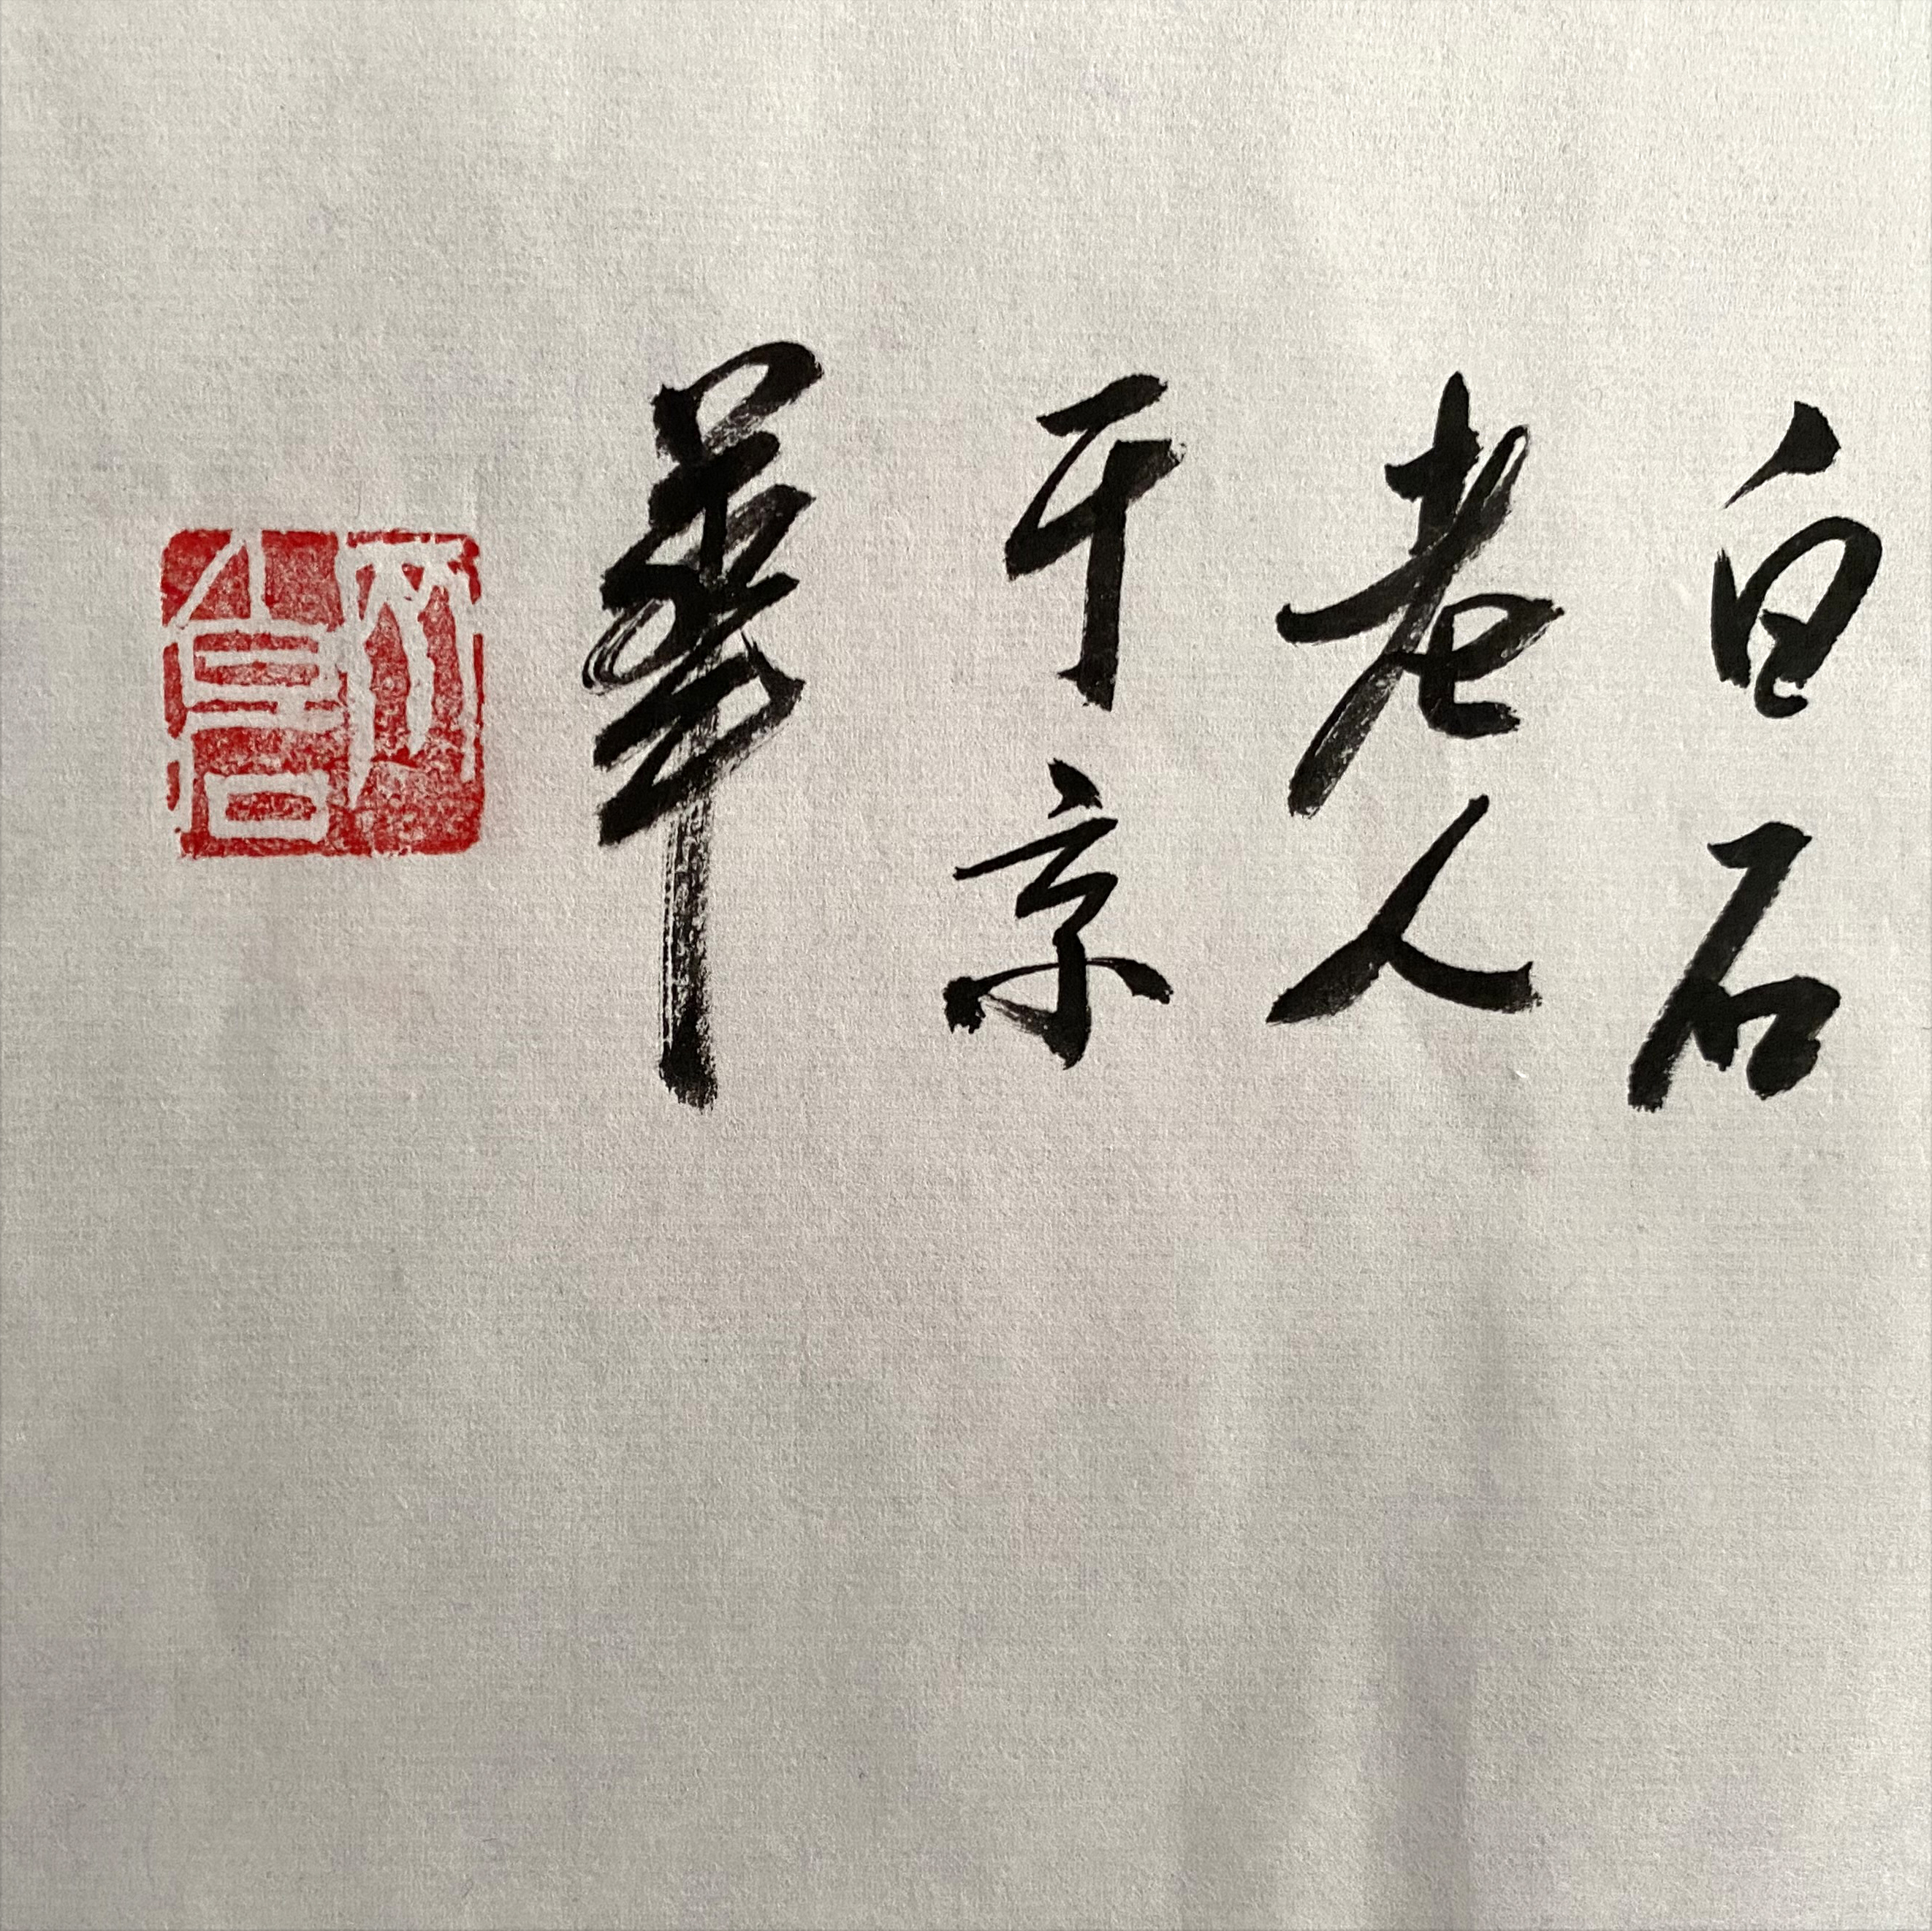 白石
老人
于京
華
齊
白石